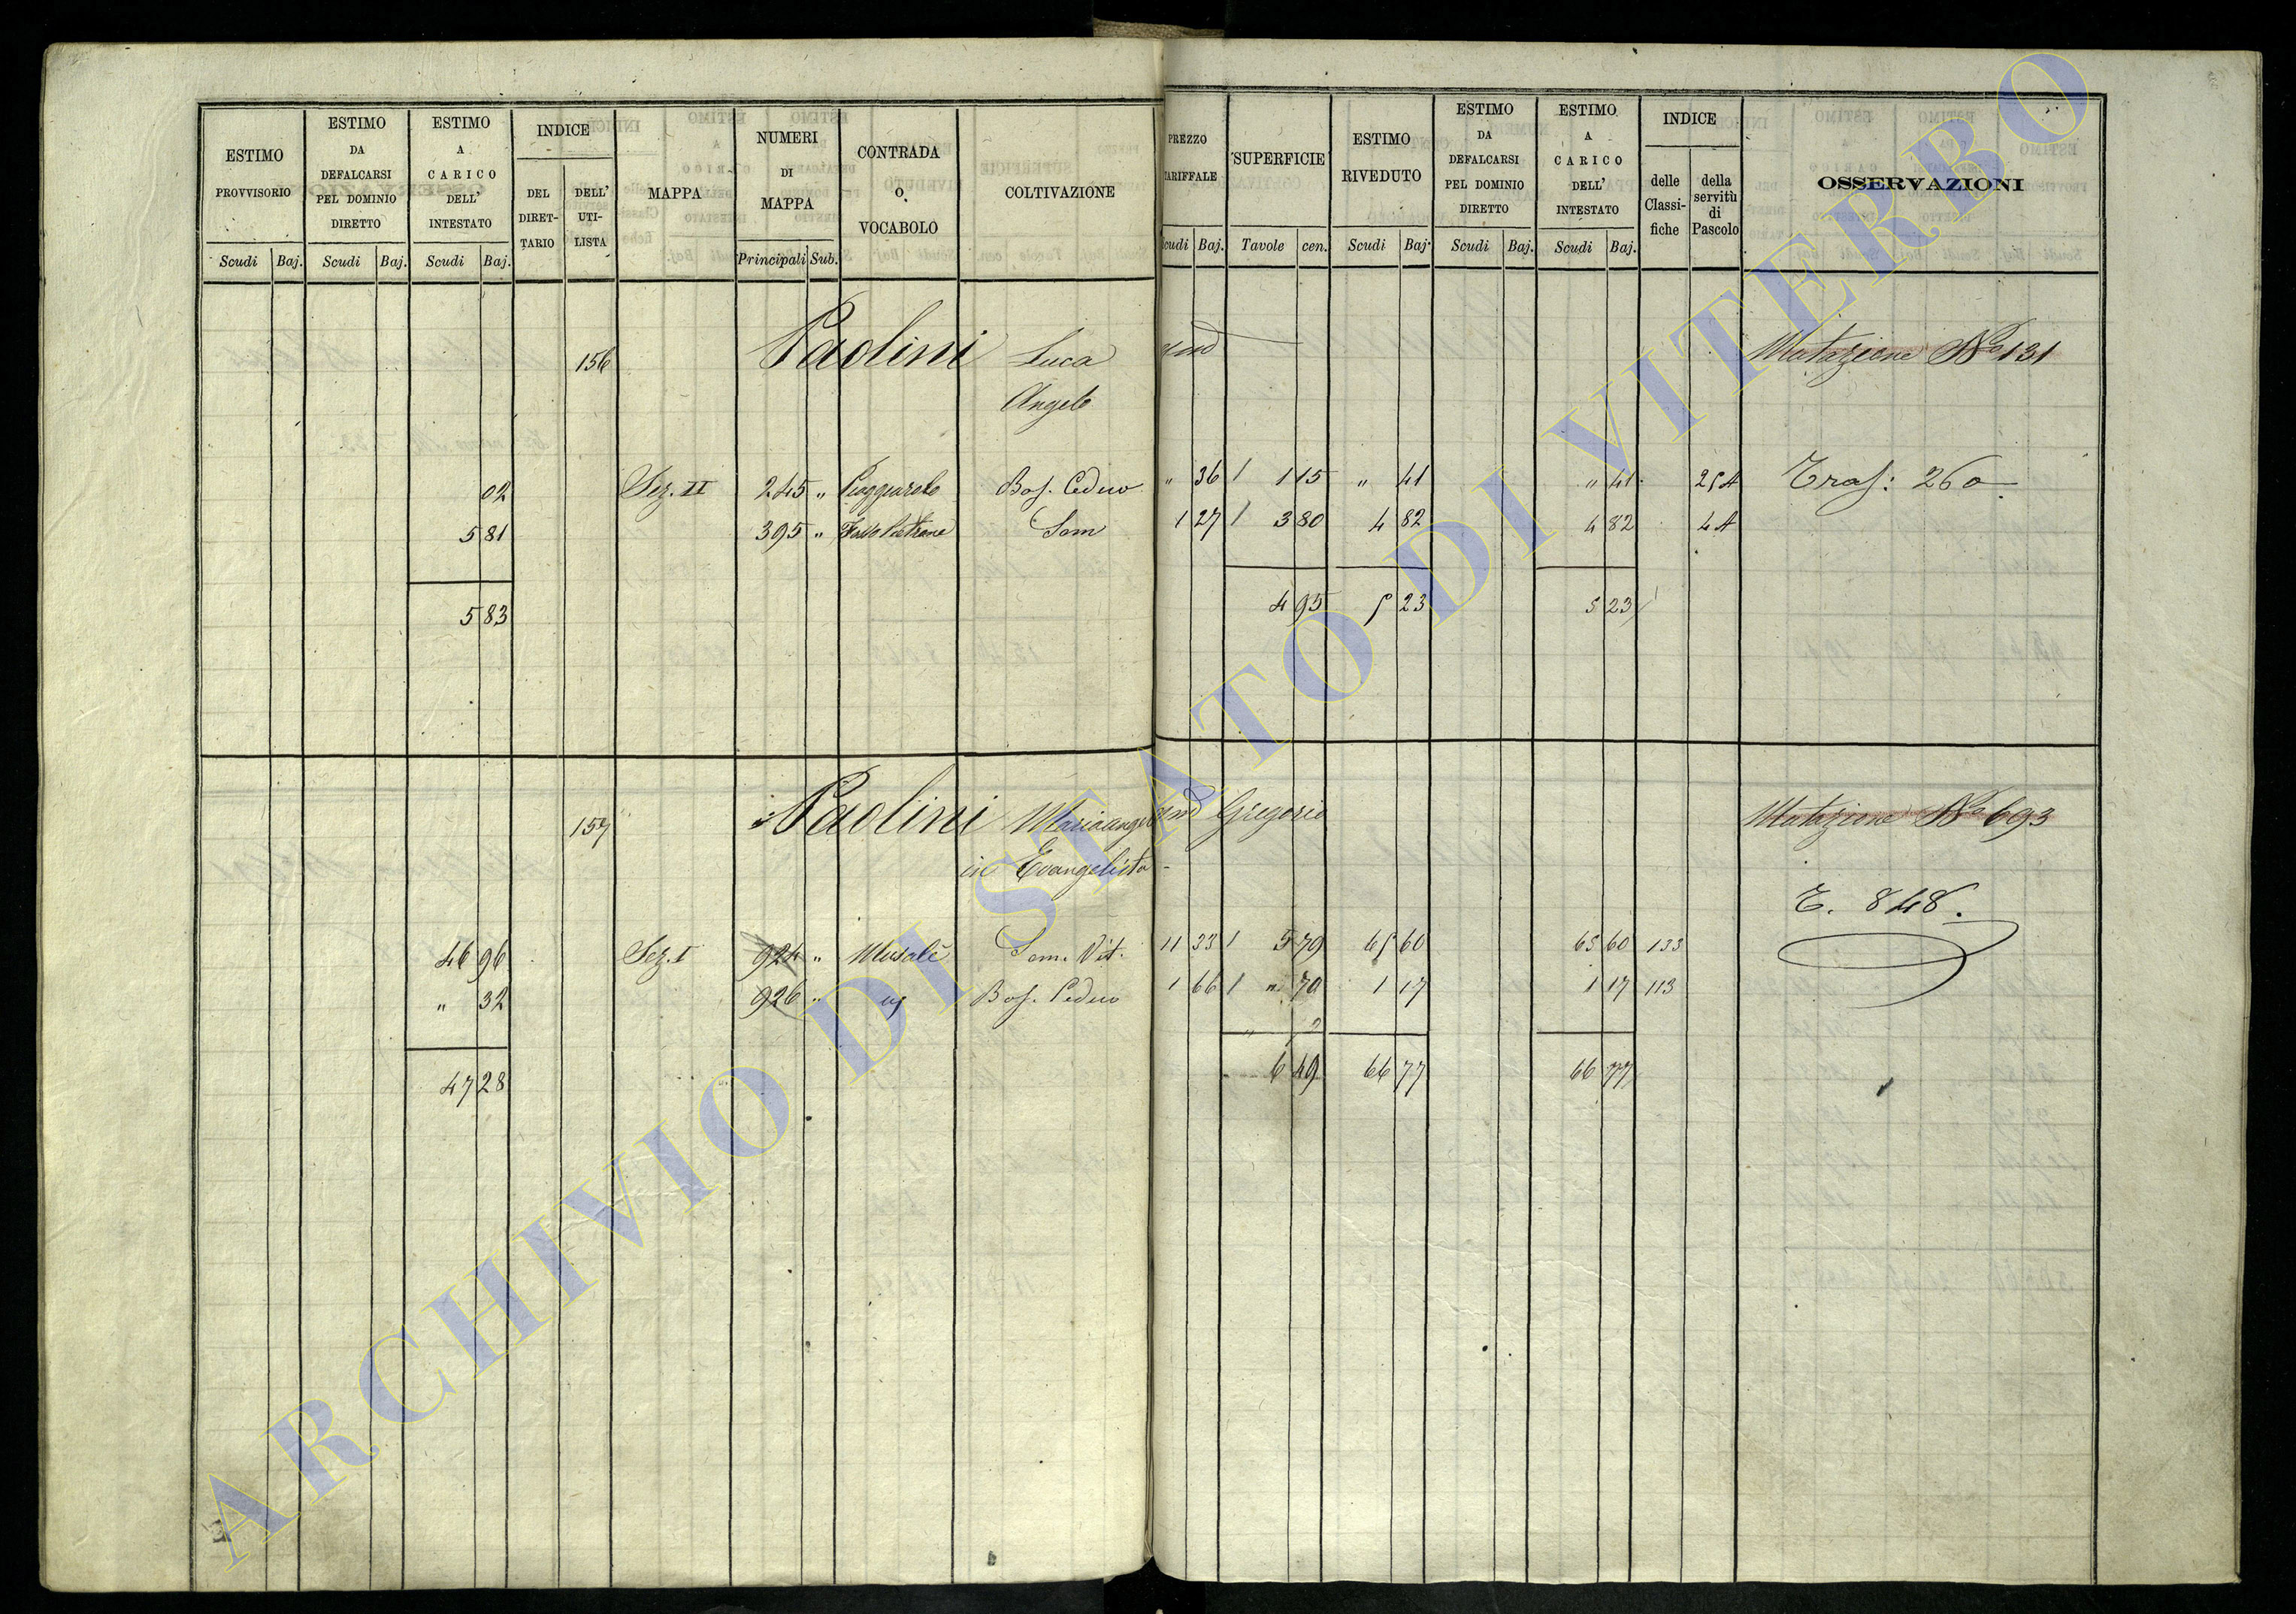 ESTIMO PROVVISORIO
ESTIMO DA DEFALCARSI PEL DOMINIO DIRETTO
ESTIMO A CARICO DELL' INTESTATO
INDICE
DEL DIRET-TARIO
DELL' UTI-LISTA
MAPPA
NUMERI DI MAPPA
CONTRADA O VOCABOLO
COLTIVAZIONE
PREZZO TARIFFALE
SUPERFICIE
ESTIMO RIVEDUTO
ESTIMO DA DEFALCARSI PEL DOMINIO DIRETTO
ESTIMO A CARICO DELL' INTESTATO
INDICE
delle Classi-fiche
della servitù di Pascolo
OSSERVAZIONI
Scudi Baj. Scudi Baj. Scudi Baj. Principali Sub. Scudi Baj. Tavole cen. Scudi Baj. Scudi Baj. Scudi Baj.
156 Paolini Luca Mutazione No 131
Angelo
02 Sez. II 245 " Bos. Ceduo " 36 / 1 15 " 41 " 41 25A Tras: 260
5 81 395 " Sem 1 27 / 3 80 4 82 4 82 4A
5 83 4 95 5 23 5 23
157 Paolini Mariangel Gregorio Mutazione No 693
in Evangelista
T. 848.
46 96 Sez. I 924 " Musalè Sem. Vit. 11 33 / 5 79 65 60 65 60 133
" 32 926 " Bos. Ceduo 1 66 / " 70 1 17 1 17 113
47 28 6 49 66 77 66 77
ARCHIVIO DI STATO DI VITERBO